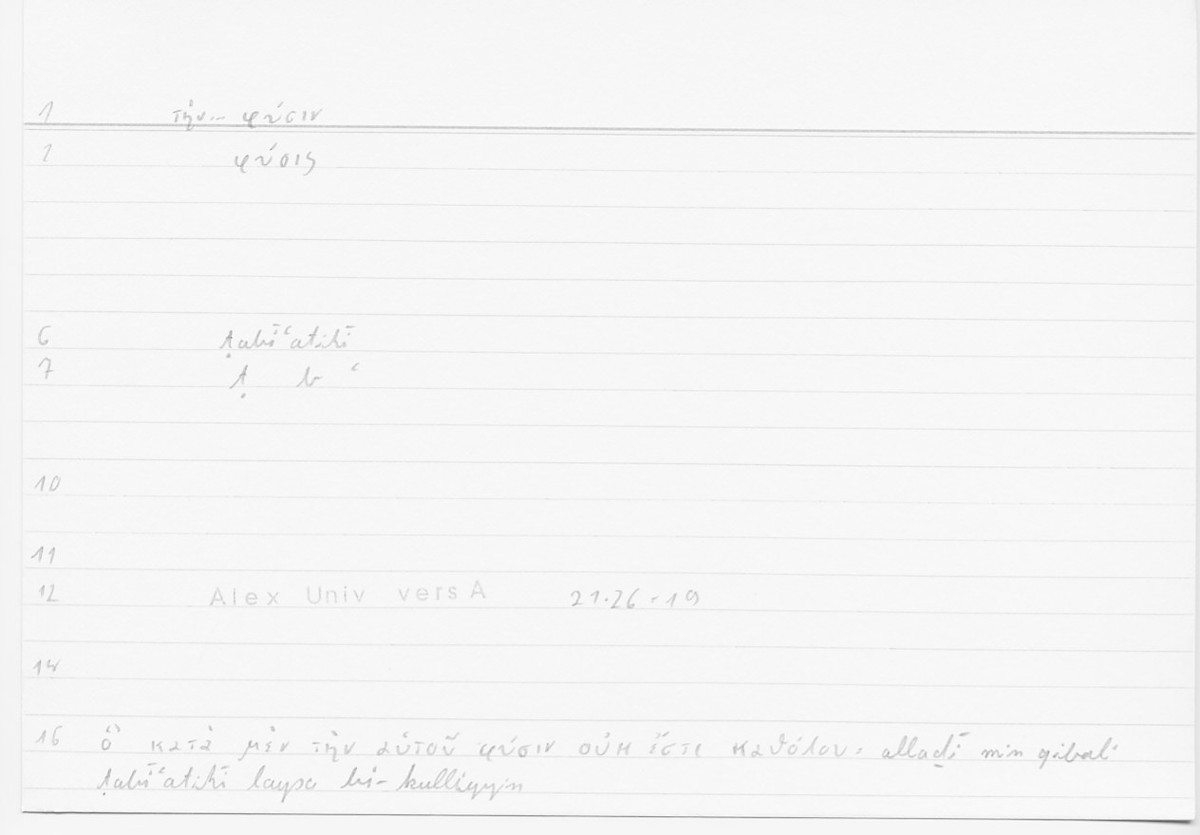 1 τὴν... φύσιν
2 φύσις
6 ṭabīʿatihī
7 ṭ b ʿ
10
11
12 Alex Univ vers A 21.26 = 19
14
16 ὃ κατὰ μὲν τὴν αὑτοῦ φύσιν οὐκ ἔστι καθόλου = allaḏī min qibali
ṭabīʿatihī laysa bi-kulliyyin